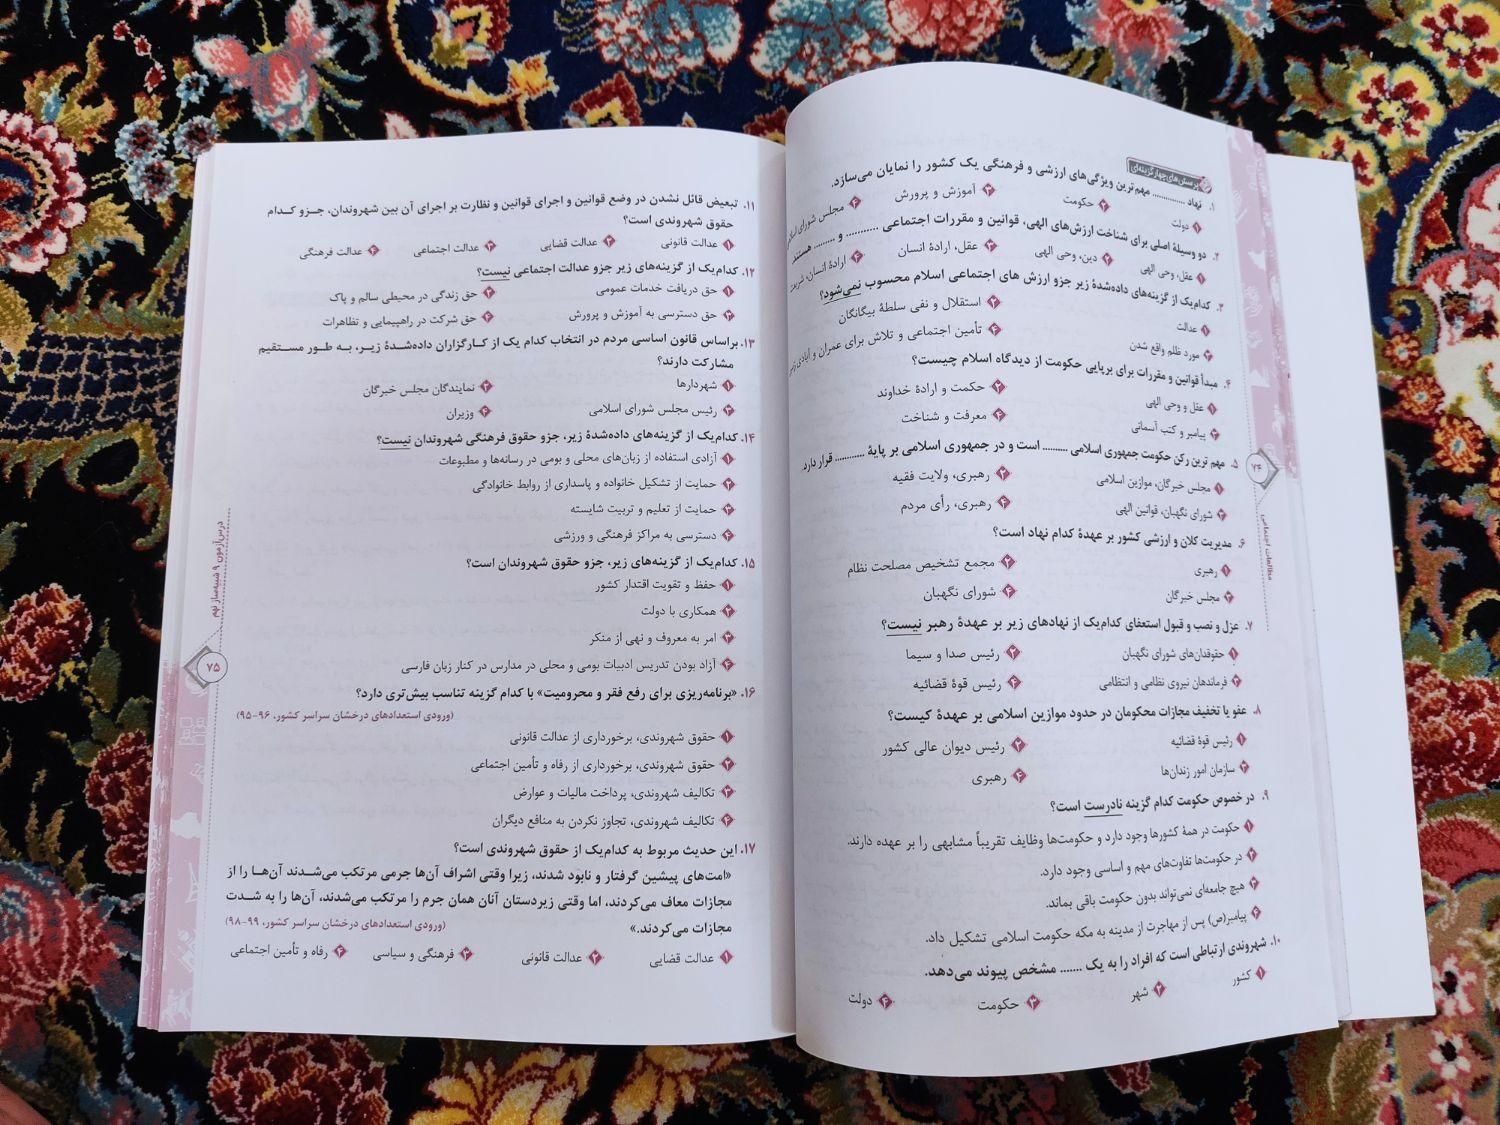 پرسش‌های چهارگزینه‌ای
۱. نهاد ............ مهم‌ترین ویژگی‌های ارزشی و فرهنگی یک کشور را نمایان می‌سازد.
۱ دولت ۲ حکومت ۳ آموزش و پرورش ۴ مجلس شورای اسلامی
۲. دو وسیلهٔ اصلی برای شناخت ارزش‌های الهی، قوانین و مقررات اجتماعی ........... و ......... هستند.
۱ عقل، وحی الهی ۲ دین، وحی الهی ۳ عقل، ارادهٔ انسان ۴ ارادهٔ انسان،
۳. کدام‌یک از گزینه‌های داده‌شدهٔ زیر جزو ارزش های اجتماعی اسلام محسوب نمی‌شود؟
۱ عدالت ۲ استقلال و نفی سلطهٔ بیگانگان
۳ مورد ظلم واقع شدن ۴ تأمین اجتماعی و تلاش برای عمران و آبادی
۴. مبدأ قوانین و مقررات برای برپایی حکومت از دیدگاه اسلام چیست؟
۱ عقل و وحی الهی ۲ حکمت و ارادهٔ خداوند
۳ پیامبر و کتب آسمانی ۴ معرفت و شناخت
۵. مهم ترین رکن حکومت جمهوری اسلامی .......... است و در جمهوری اسلامی بر پایهٔ ............ قرار دارد.
۱ مجلس خبرگان، موازین اسلامی ۲ رهبری، ولایت فقیه
۳ شورای نگهبان، قوانین الهی ۴ رهبری، رأی مردم
۶. مدیریت کلان و ارزشی کشور بر عهدهٔ کدام نهاد است؟
۱ رهبری ۲ مجمع تشخیص مصلحت نظام
۳ مجلس خبرگان ۴ شورای نگهبان
۷. عزل و نصب و قبول استعفای کدام‌یک از نهادهای زیر بر عهدهٔ رهبر نیست؟
۱ حقوقدان‌های شورای نگهبان ۲ رئیس صدا و سیما
۳ فرماندهان نیروی نظامی و انتظامی ۴ رئیس قوهٔ قضائیه
۸. عفو یا تخفیف مجازات محکومان در حدود موازین اسلامی بر عهدهٔ کیست؟
۱ رئیس قوهٔ قضائیه ۲ رئیس دیوان عالی کشور
۳ سازمان امور زندان‌ها ۴ رهبری
۹. در خصوص حکومت کدام گزینه نادرست است؟
۱ حکومت در همهٔ کشورها وجود دارد و حکومت‌ها وظایف تقریباً مشابهی را بر عهده دارند.
۲ در حکومت‌ها تفاوت‌های مهم و اساسی وجود دارد.
۳ هیچ جامعه‌ای نمی‌تواند بدون حکومت باقی بماند.
۴ پیامبر(ص) پس از مهاجرت از مدینه به مکه حکومت اسلامی تشکیل داد.
۱۰. شهروندی ارتباطی است که افراد را به یک ........ مشخص پیوند می‌دهد.
۱ کشور ۲ شهر ۳ حکومت ۴ دولت
۷۴
مطالعات اجتماعی
۱۱. تبعیض قائل نشدن در وضع قوانین و اجرای قوانین و نظارت بر اجرای آن بین شهروندان، جـزو کـدام
حقوق شهروندی است؟
۱ عدالت قانونی ۲ عدالت قضایی ۳ عدالت اجتماعی ۴ عدالت فرهنگی
۱۲. کدام‌یک از گزینه‌های زیر جزو عدالت اجتماعی نیست؟
۱ حق دریافت خدمات عمومی ۲ حق زندگی در محیطی سالم و پاک
۳ حق دسترسی به آموزش و پرورش ۴ حق شرکت در راهپیمایی و تظاهرات
۱۳. براساس قانون اساسی مردم در انتخاب کدام یک از کـارگزاران داده‌شـدهٔ زیـر، بـه طـور مسـتقیم
مشارکت دارند؟
۱ شهردارها ۲ نمایندگان مجلس خبرگان
۳ رئیس مجلس شورای اسلامی ۴ وزیران
۱۴. کدام‌یک از گزینه‌های داده‌شدهٔ زیر، جزو حقوق فرهنگی شهروندان نیست؟
۱ آزادی استفاده از زبان‌های محلی و بومی در رسانه‌ها و مطبوعات
۲ حمایت از تشکیل خانواده و پاسداری از روابط خانوادگی
۳ حمایت از تعلیم و تربیت شایسته
۴ دسترسی به مراکز فرهنگی و ورزشی
۱۵. کدام‌یک از گزینه‌های زیر، جزو حقوق شهروندان است؟
۱ حفظ و تقویت اقتدار کشور
۲ همکاری با دولت
۳ امر به معروف و نهی از منکر
۴ آزاد بودن تدریس ادبیات بومی و محلی در مدارس در کنار زبان فارسی
۱۶. «برنامه‌ریزی برای رفع فقر و محرومیت» با کدام گزینه تناسب بیش‌تری دارد؟
(ورودی استعدادهای درخشان سراسر کشور، ۹۶-۹۵)
۱ حقوق شهروندی، برخورداری از عدالت قانونی
۲ حقوق شهروندی، برخورداری از رفاه و تأمین اجتماعی
۳ تکالیف شهروندی، پرداخت مالیات و عوارض
۴ تکالیف شهروندی، تجاوز نکردن به منافع دیگران
۱۷. این حدیث مربوط به کدام‌یک از حقوق شهروندی است؟
«امت‌های پیشین گرفتار و نابود شدند، زیرا وقتی اشراف آن‌ها جرمی مرتکب می‌شدند آن‌هـا را از
مجازات معاف می‌کردند، اما وقتی زیردستان آنان همان جرم را مرتکب می‌شدند، آن‌ها را به شدت
مجازات می‌کردند.» (ورودی استعدادهای درخشان سراسر کشور، ۹۹-۹۸)
۱ عدالت قضایی ۲ عدالت قانونی ۳ فرهنگی و سیاسی ۴ رفاه و تأمین اجتماعی
درس‌آزمون ۹ شبیه‌ساز نهم
۷۵